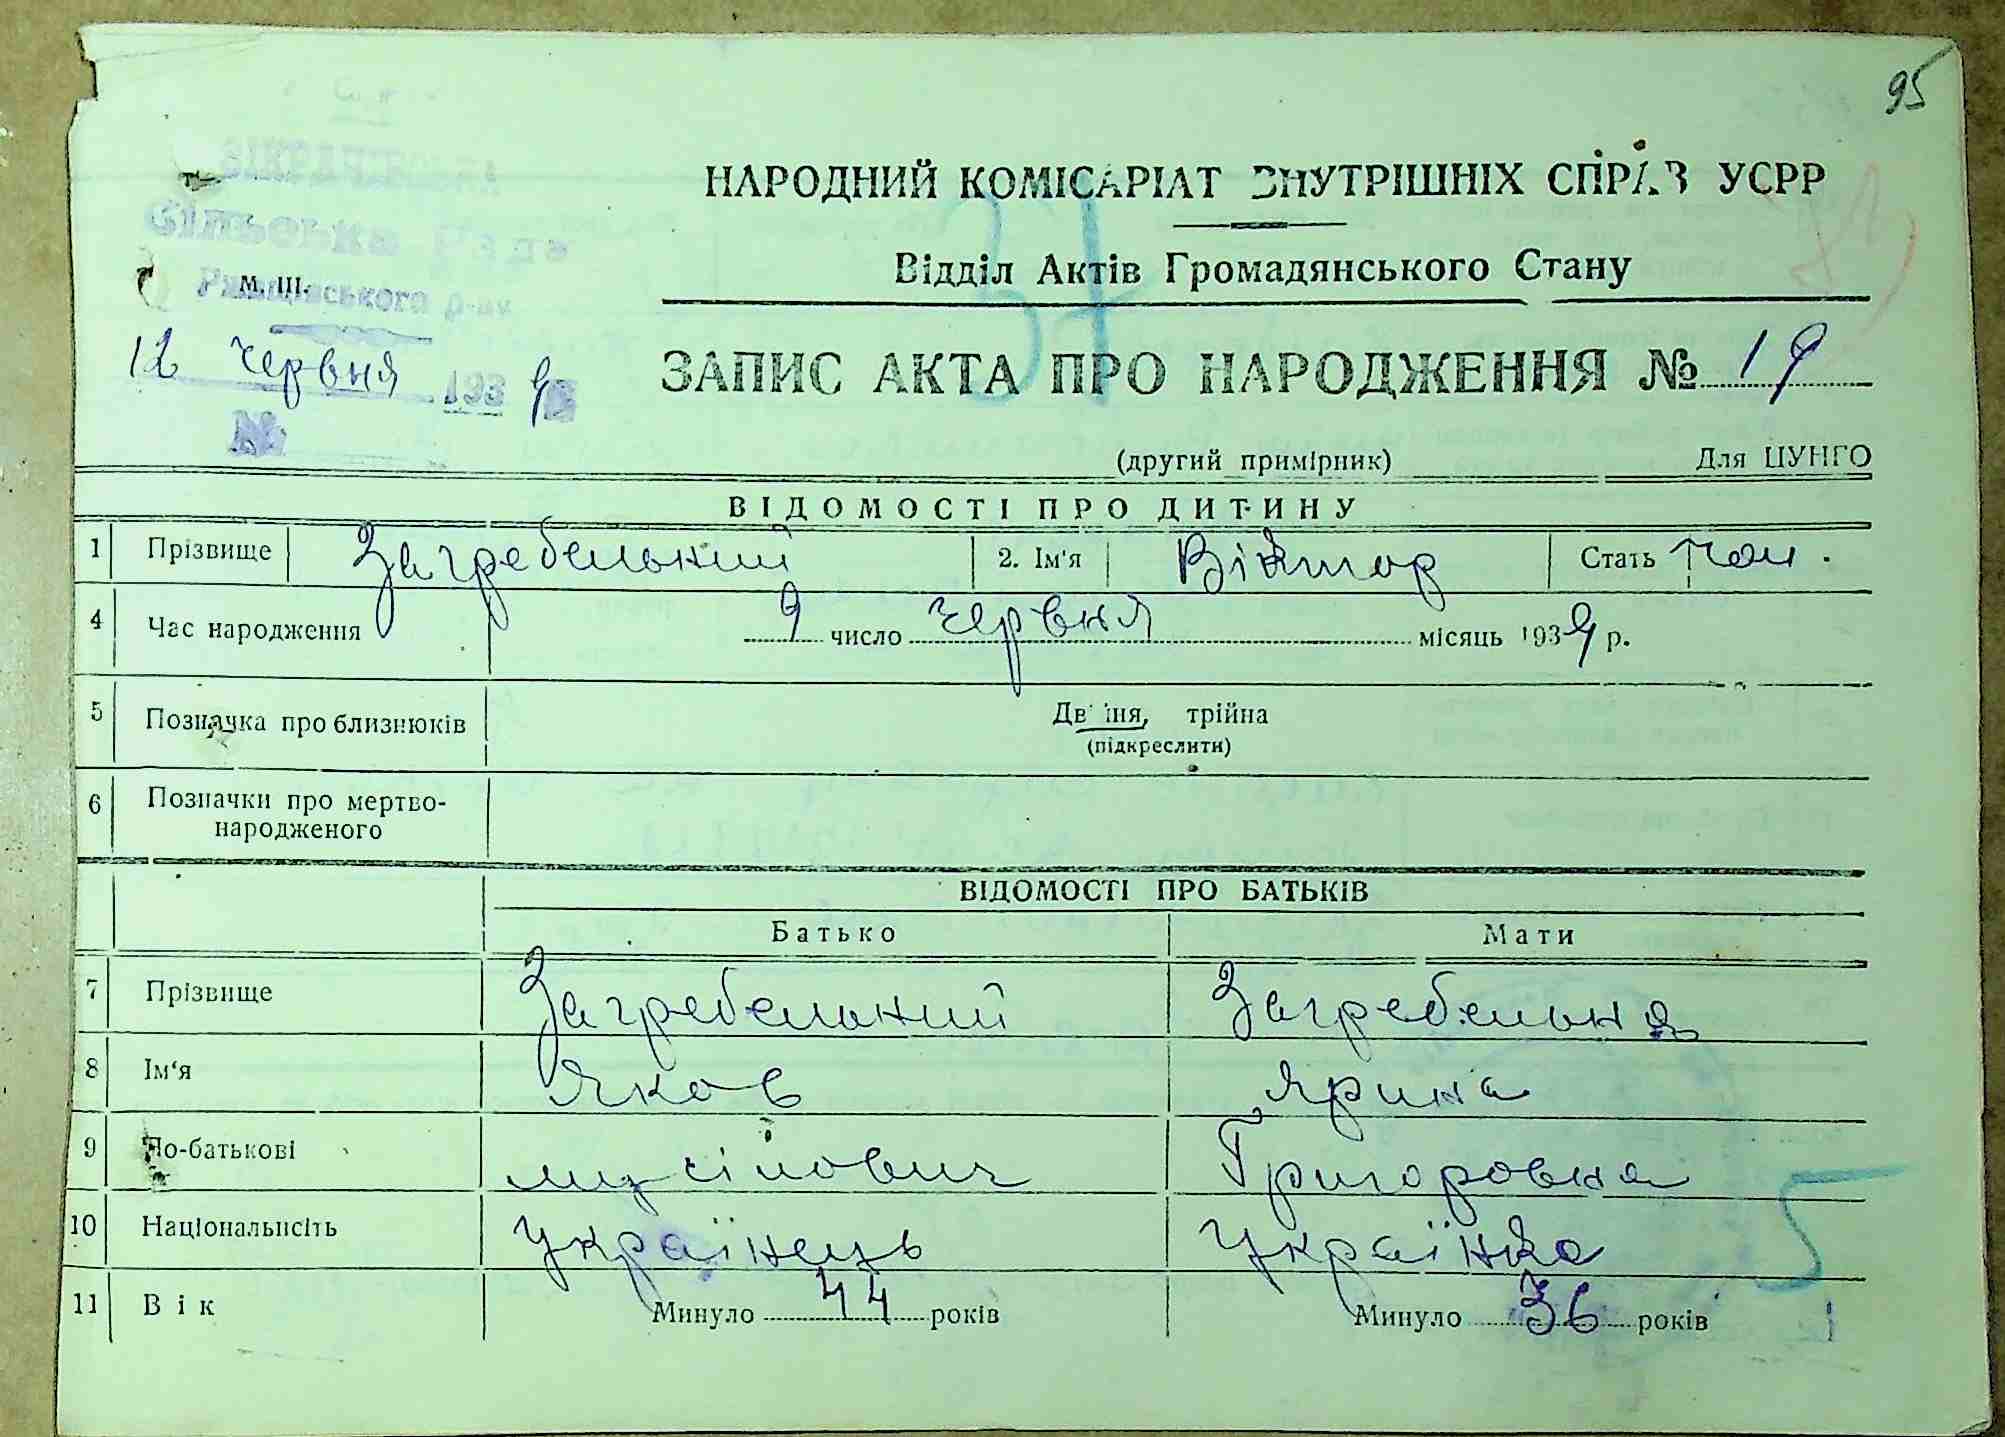 95
НАРОДНИЙ КОМІСАРІАТ ВНУТРІШНІХ СПРАВ УСРР
37
Сільська Рада
Відділ Актів Громадянського Стану
М. Ш.
Ржищівського р-ну
12 червня 1939
ЗАПИС АКТА ПРО НАРОДЖЕННЯ № 19
№
(другий примірник) Для ЦУНГО
ВІДОМОСТІ ПРО ДИТИНУ
1 Прізвище Загребельний 2. Ім'я Віктор Стать чол.
4 Час народження 9 число червня місяць 1939 р.
5 Позначка про близнюків Двійня, трійна
(підкреслити)
6 Позначки про мертво-
народженого
ВІДОМОСТІ ПРО БАТЬКІВ
Батько Мати
7 Прізвище Загребельний Загребельна
8 Ім'я Яков Ярина
9 По-батькові Григоровна
10 Національність українець українка
5
11 Вік Минуло 44 років Минуло 36 років